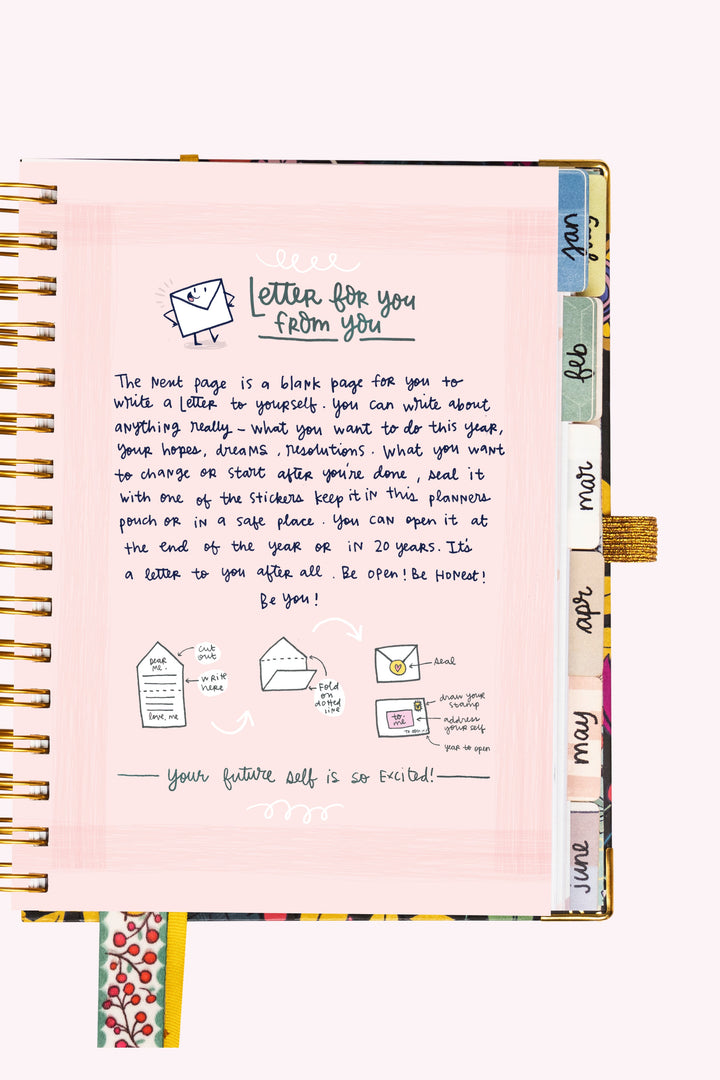 Letter for you
from you
The Next page is a blank page for you to
write a Letter to yourself. you can write about
anything really - what you want to do this year,
your hopes, dreams, resolutions. What you want
to change or start after you're done, seal it
with one of the stickers keep it in this planners
pouch or in a safe place. You can open it at
the end of the year or in 20 years. It's
a letter to you after all. Be open! Be Honest!
Be You!
Dear
me.
love, me
cut
out
write
here
Fold
on
dotted
line
seal
to:
me
draw your
stamp
address
your self
year to open
your future self is so Excited!
jan
feb
mar
apr
may
june